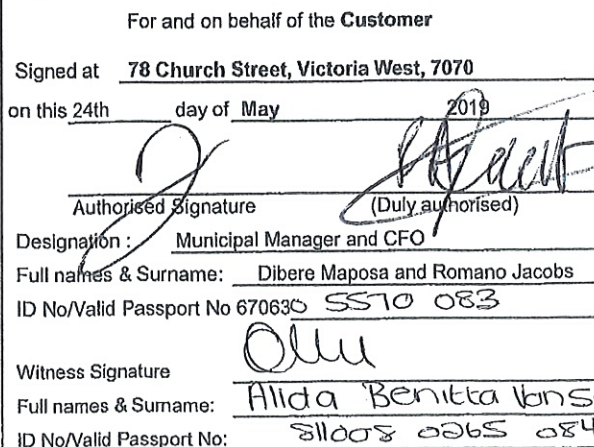 For and on behalf of the Customer
Signed at 78 Church Street, Victoria West, 7070
on this 24th day of May 2019
Authorised Signature (Duly authorised)
Designation : Municipal Manager and CFO
Full names & Surname: Dibere Maposa and Romano Jacobs
ID No/Valid Passport No 670630 5570 083
Witness Signature
Full names & Surname: Alida Benitta Vans
ID No/Valid Passport No: 811008 0265 084